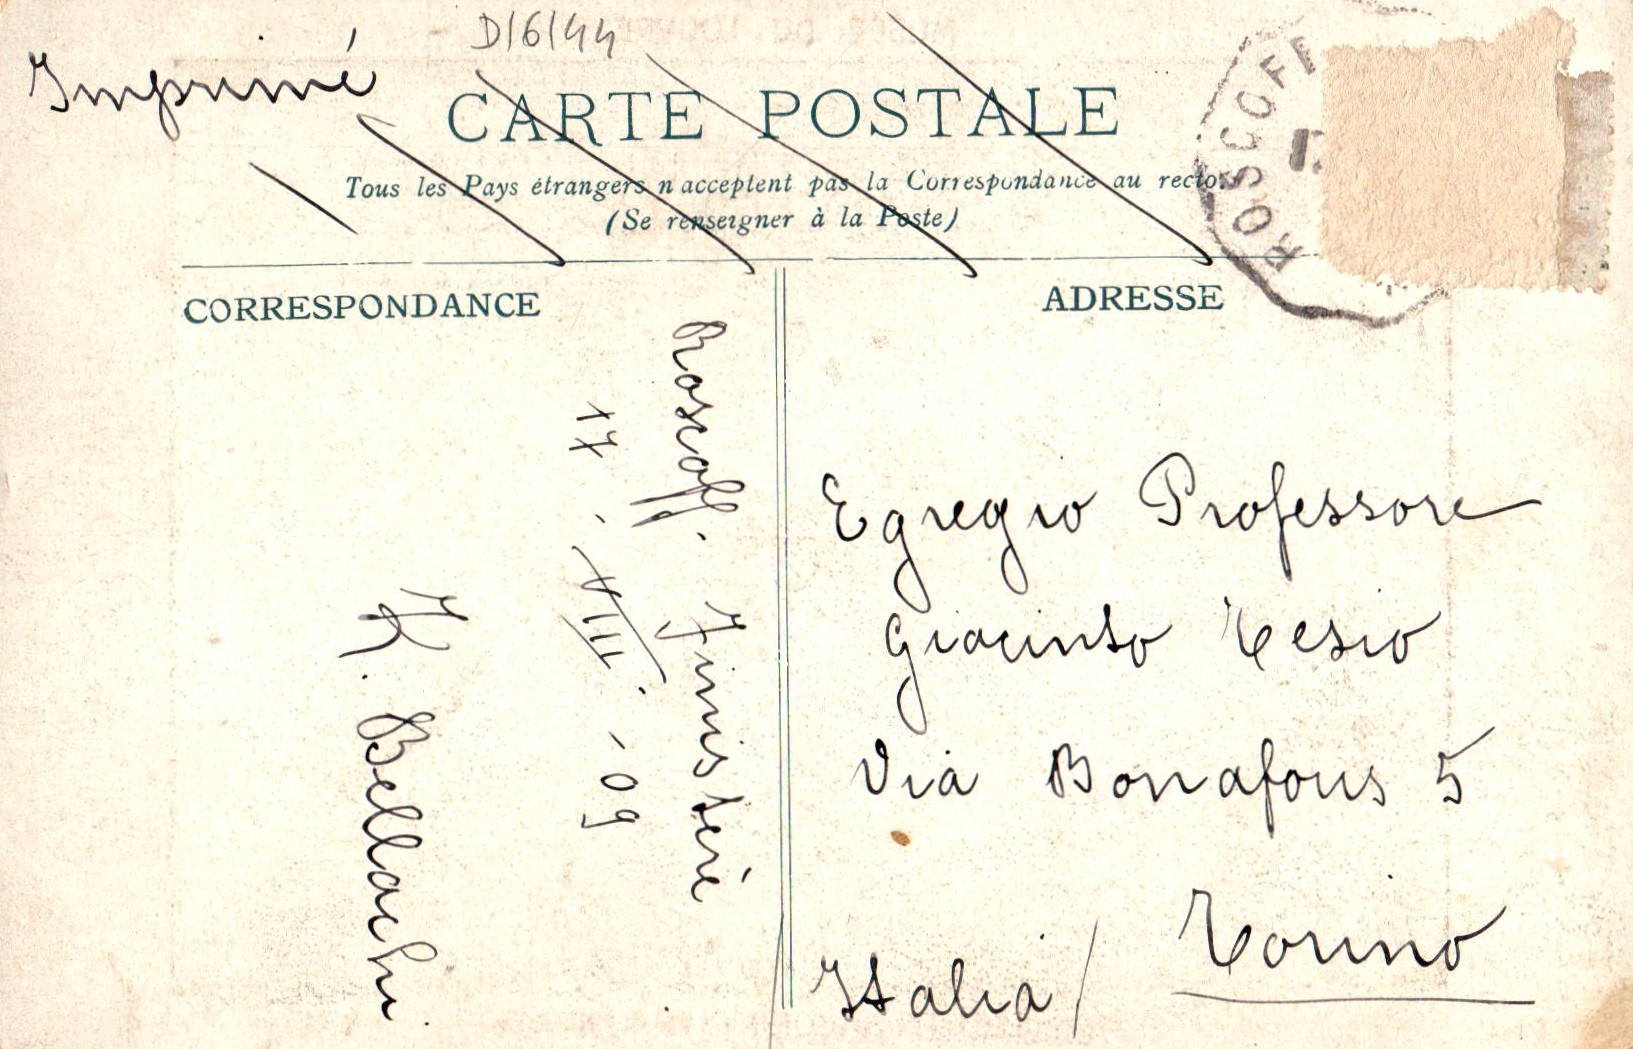 D/6/44
Imprimé
CARTE POSTALE
Tous les Pays étrangers n'acceptent pas la Correspondance au recto.
(Se renseigner à la Poste)
CORRESPONDANCE
ADRESSE
ROSCOFF
Roscoff. Finisterè
17 - VIII - 09
Bellachi.
Egregio Professore
Giacinto Tesio
Via Bonafous 5
Torino
Italia/